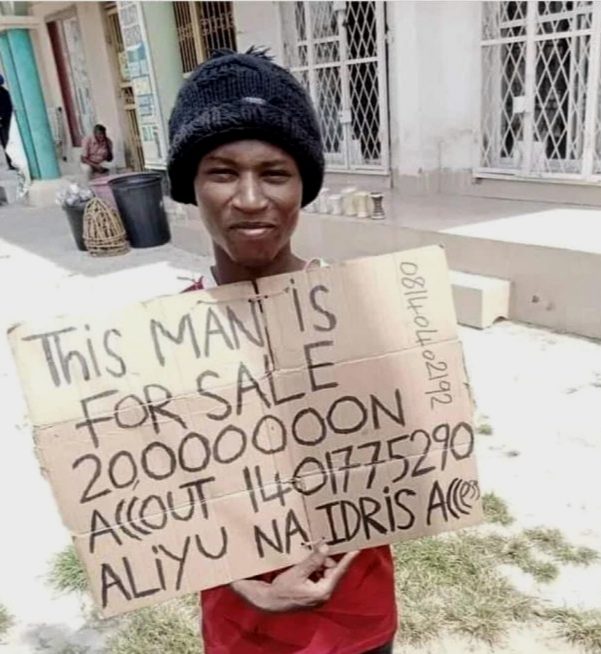 This MAN IS
FOR SALE
20,000000N
ACCOUT 1401775290
ALiYU NA IDRIS ACCess
08140402192